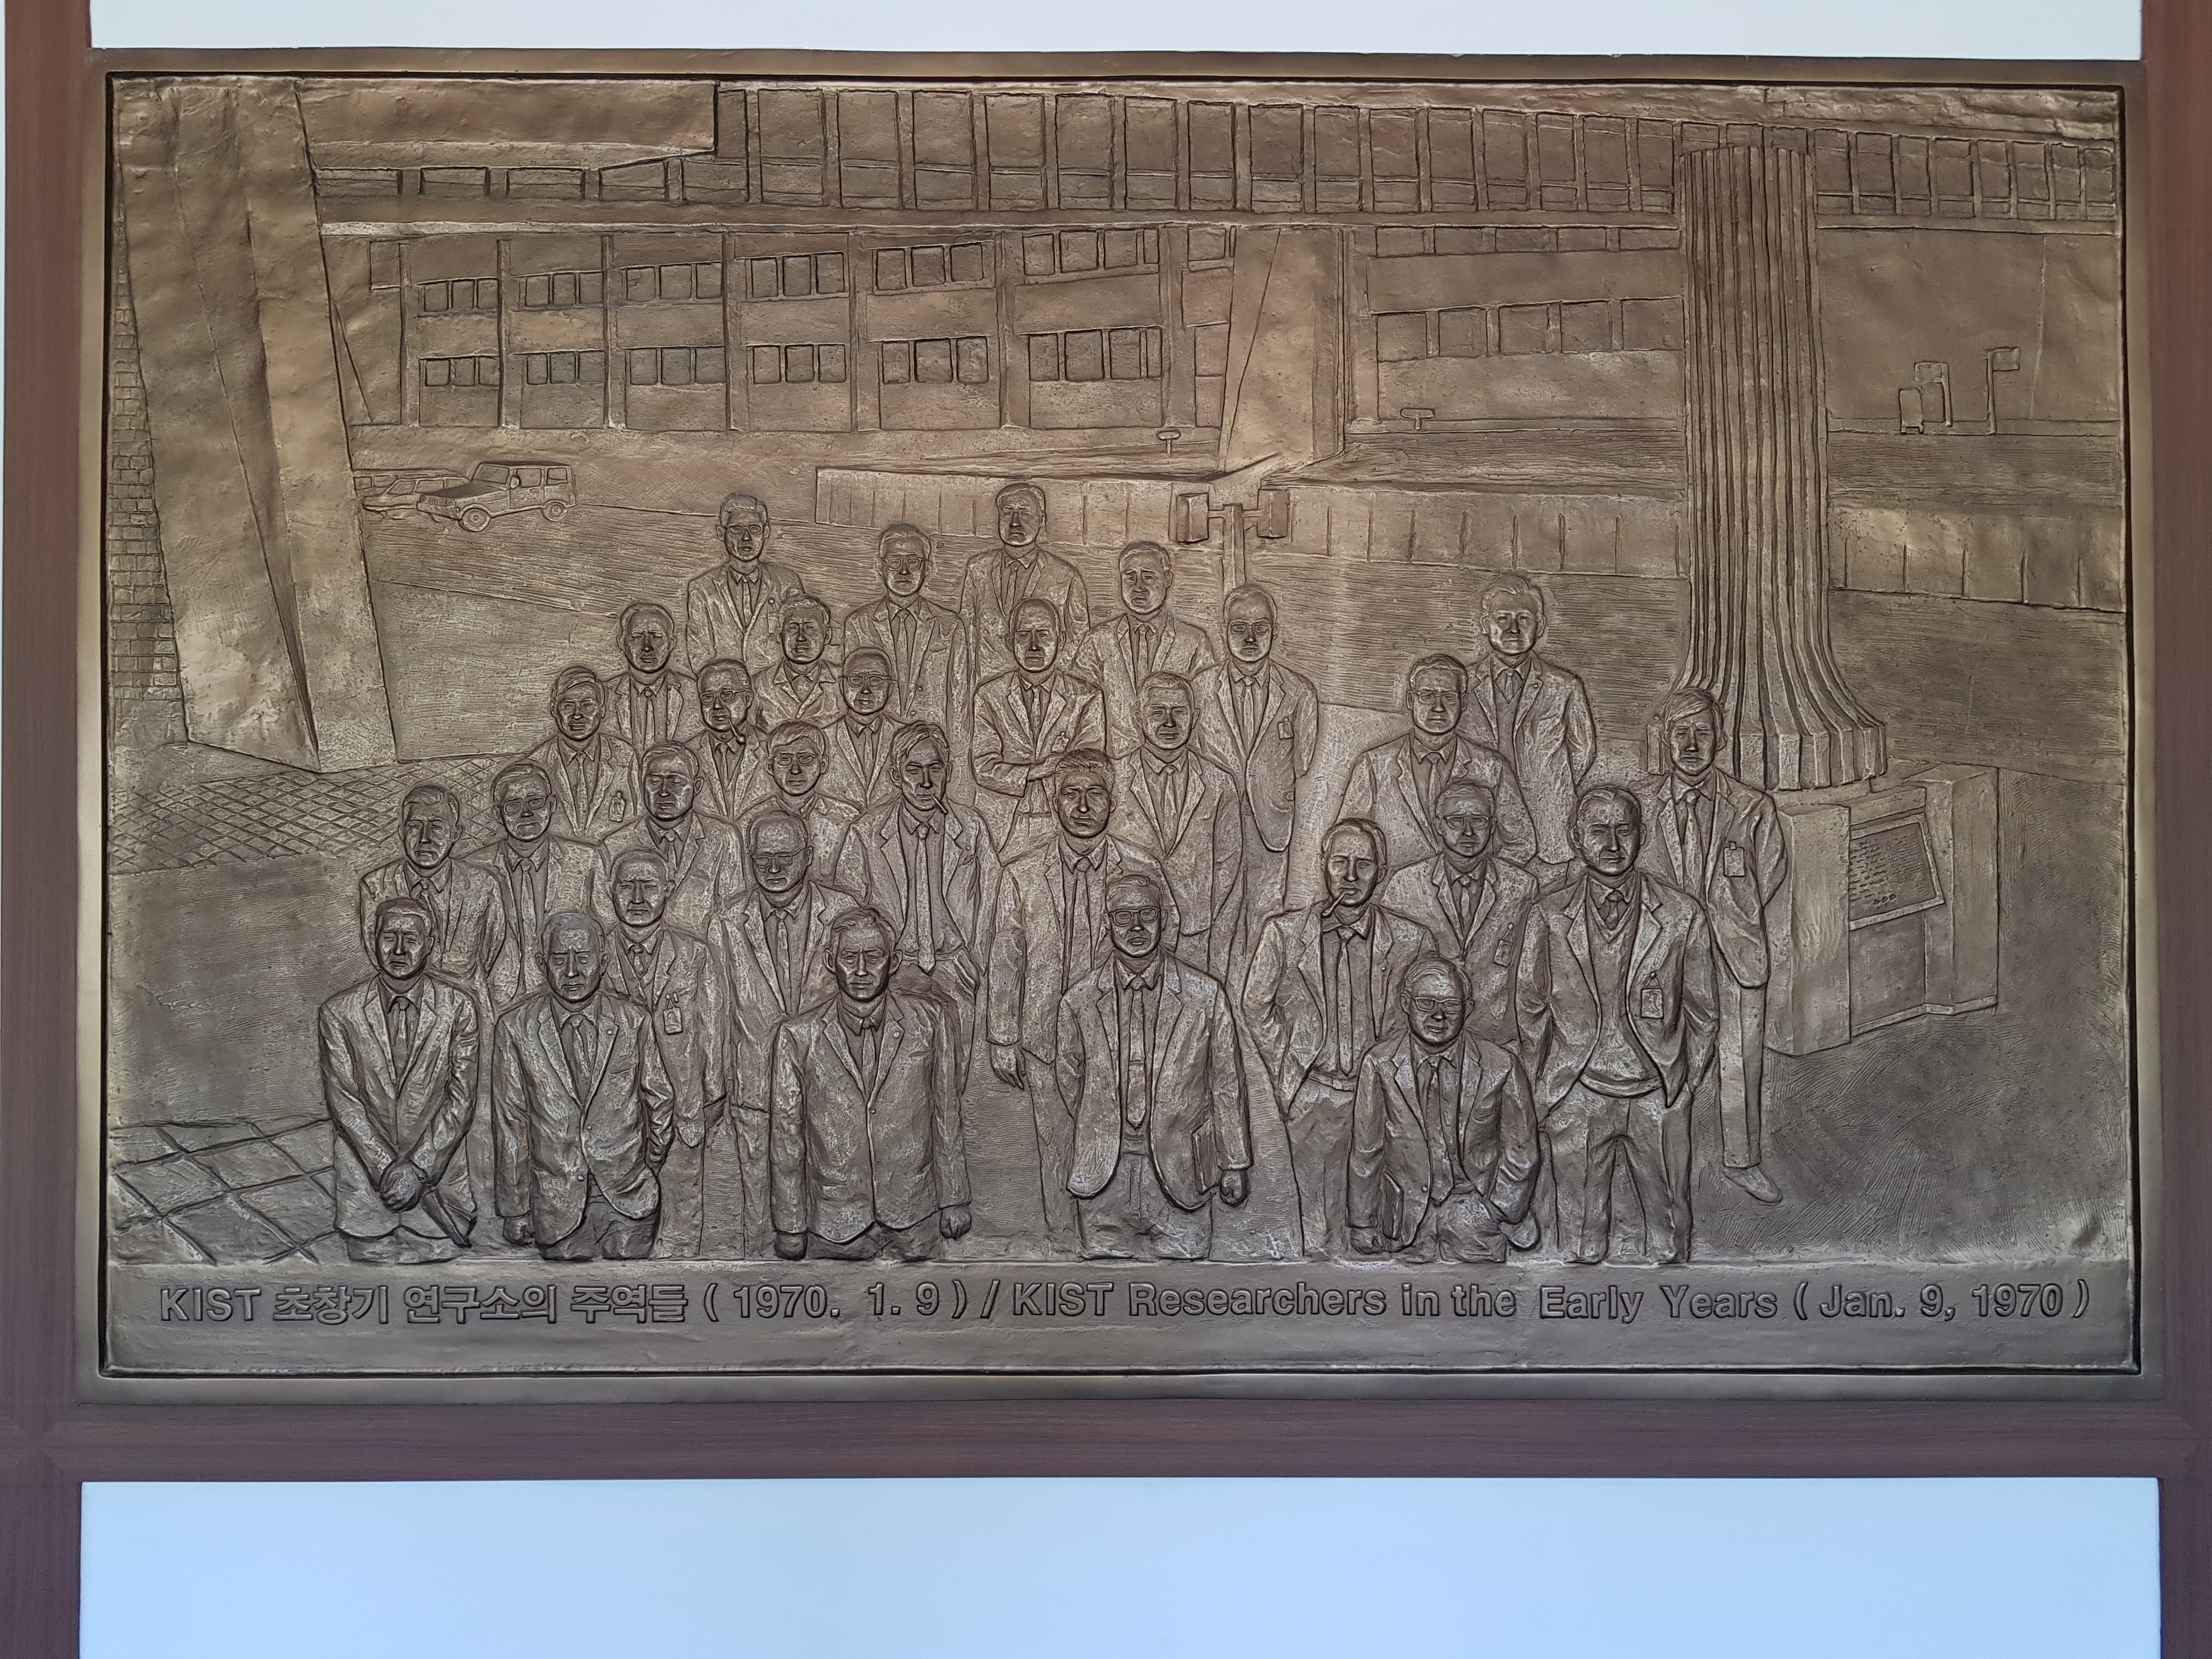 KIST 초창기 연구소의 주역들 ( 1970. 1. 9 ) / KIST Researchers in the Early Years ( Jan. 9, 1970 )